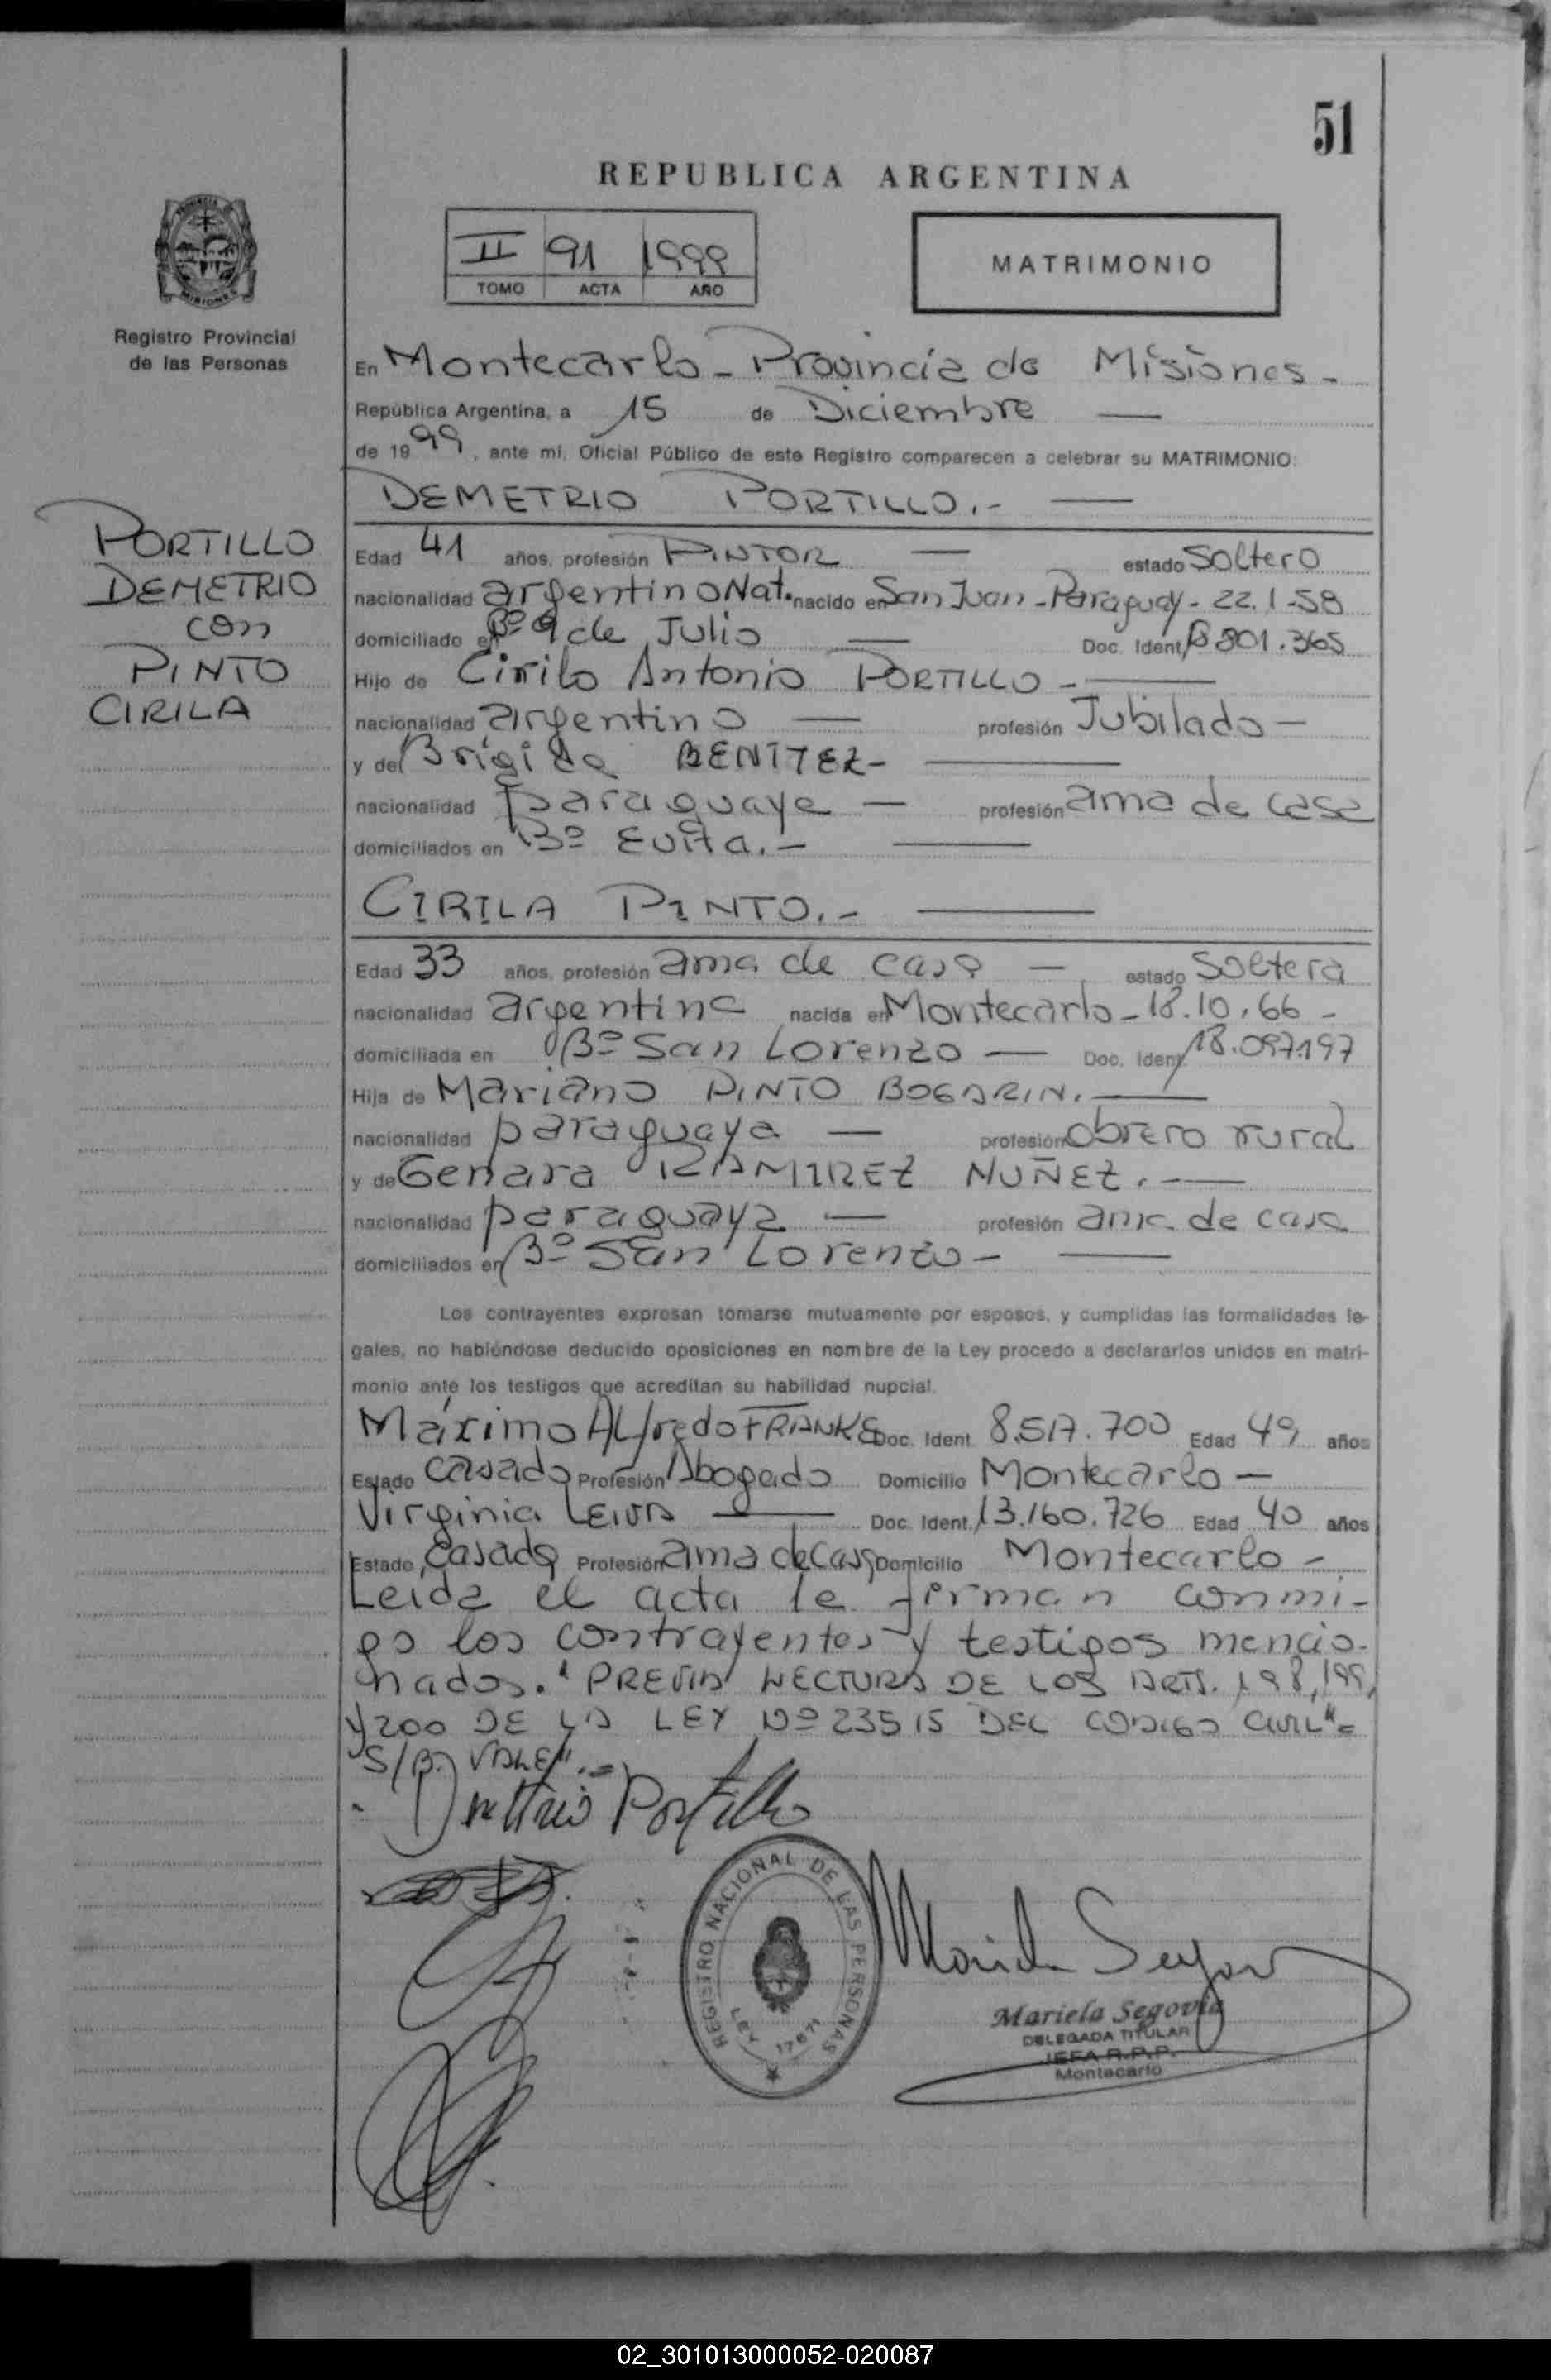 51
REPUBLICA ARGENTINA
II 91 1999
TOMO ACTA AÑO
MATRIMONIO
Registro Provincial
de las Personas
En Montecarlo - Provincia de Misiones -
República Argentina, a 15 de Diciembre —
de 1999, ante mí, Oficial Público de este Registro comparecen a celebrar su MATRIMONIO:
DEMETRIO PORTILLO.- —
PORTILLO
DEMETRIO
con
PINTO
CIRILA
Edad 41 años, profesión PINTOR — estado Soltero
nacionalidad argentino Nat. nacido en San Juan - Paraguay - 22.1-58
domiciliado en Bº 9 de Julio — Doc. Ident. 801.365
Hijo de Cirilo Antonio PORTILLO - —
nacionalidad argentino — profesión Jubilado —
y de Brígida BENITEZ - —
nacionalidad paraguaya — profesión ama de casa
domiciliados en Bº Evita.- —
CIRILA PINTO.- —
Edad 33 años, profesión ama de casa — estado Soltera
nacionalidad argentina nacida en Montecarlo - 18.10.66 -
domiciliada en Bº San Lorenzo — Doc. Ident. 18.097.197
Hija de Mariano PINTO BOGARIN. —
nacionalidad paraguaya — profesión obrero rural
y de Genara RAMIREZ NUÑEZ. - —
nacionalidad paraguaya — profesión ama de casa
domiciliados en Bº San Lorenzo - —
Los contrayentes expresan tomarse mutuamente por esposos, y cumplidas las formalidades le-
gales, no habiéndose deducido oposiciones en nombre de la Ley procedo a declararlos unidos en matri-
monio ante los testigos que acreditan su habilidad nupcial.
Máximo Alfredo FRANKE Doc. Ident. 8.517.700 Edad 49 años
Estado Casado Profesión Abogado Domicilio Montecarlo —
Virginia LEIVA — Doc. Ident. 13.160.726 Edad 40 años
Estado Casada Profesión ama de Casa Domicilio Montecarlo -
Leida el acta le firman conmi-
go los contrayentes y testigos mencio-
nados. "PREVIA LECTURA DE LOS ARTS. 198, 199,
y 200 DE LA LEY Nº 23515 DEL CODIGO CIVIL"=
S/B. VALE".=
Demetrio Portillo
REGISTRO NACIONAL DE LAS PERSONAS
LEY 17671
Mariela Segovia
Mariela Segovia
DELEGADA TITULAR
JEFA R.P.P.
Montecarlo
02_301013000052-020087